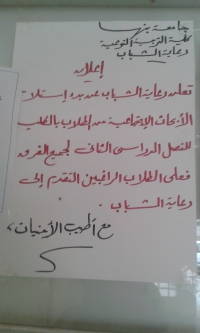 جامعة بنها
كلية التربية النوعية
رعاية الشباب
إعلان
تعلن رعاية الشباب عن بدء استلام
الأبحاث الاجتماعية من الطلاب بالكلية
للفصل الدراسى الثانى لجميع الفرق
فعلى الطلاب الراغبين التقدم إلى
رعاية الشباب .
مع أطيب الأمنيات ،